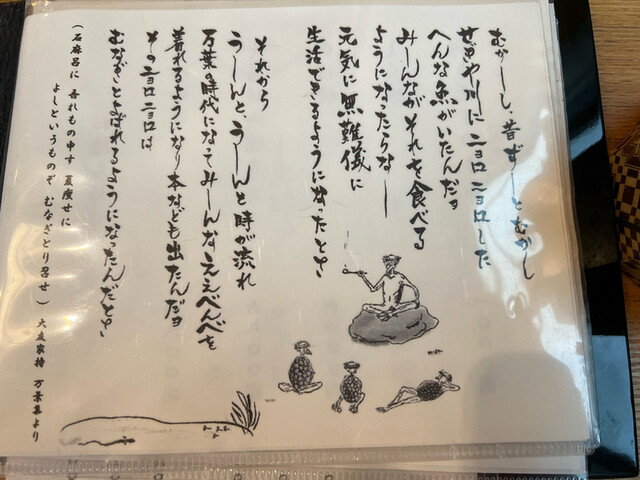 むかーし、昔ずーとむかし
ぜきや川にニョロニョロした
へんな魚がいたんだョ
みーんながそれを食べる
ようになったらなー
元気に無難儀に
生活できるようになったとさ
それから
うーんと、うーんと時が流れ
万葉の時代になてみーんなええべんべを
着れるようになり本なども出たんだヨ
そのニョロニョロは
むなぎとよばれるようになったんだとさ
(石麻呂に 吾れもの申す 夏痩せに
よしというものぞ むなぎとり召せ)
大友家持 万葉集より